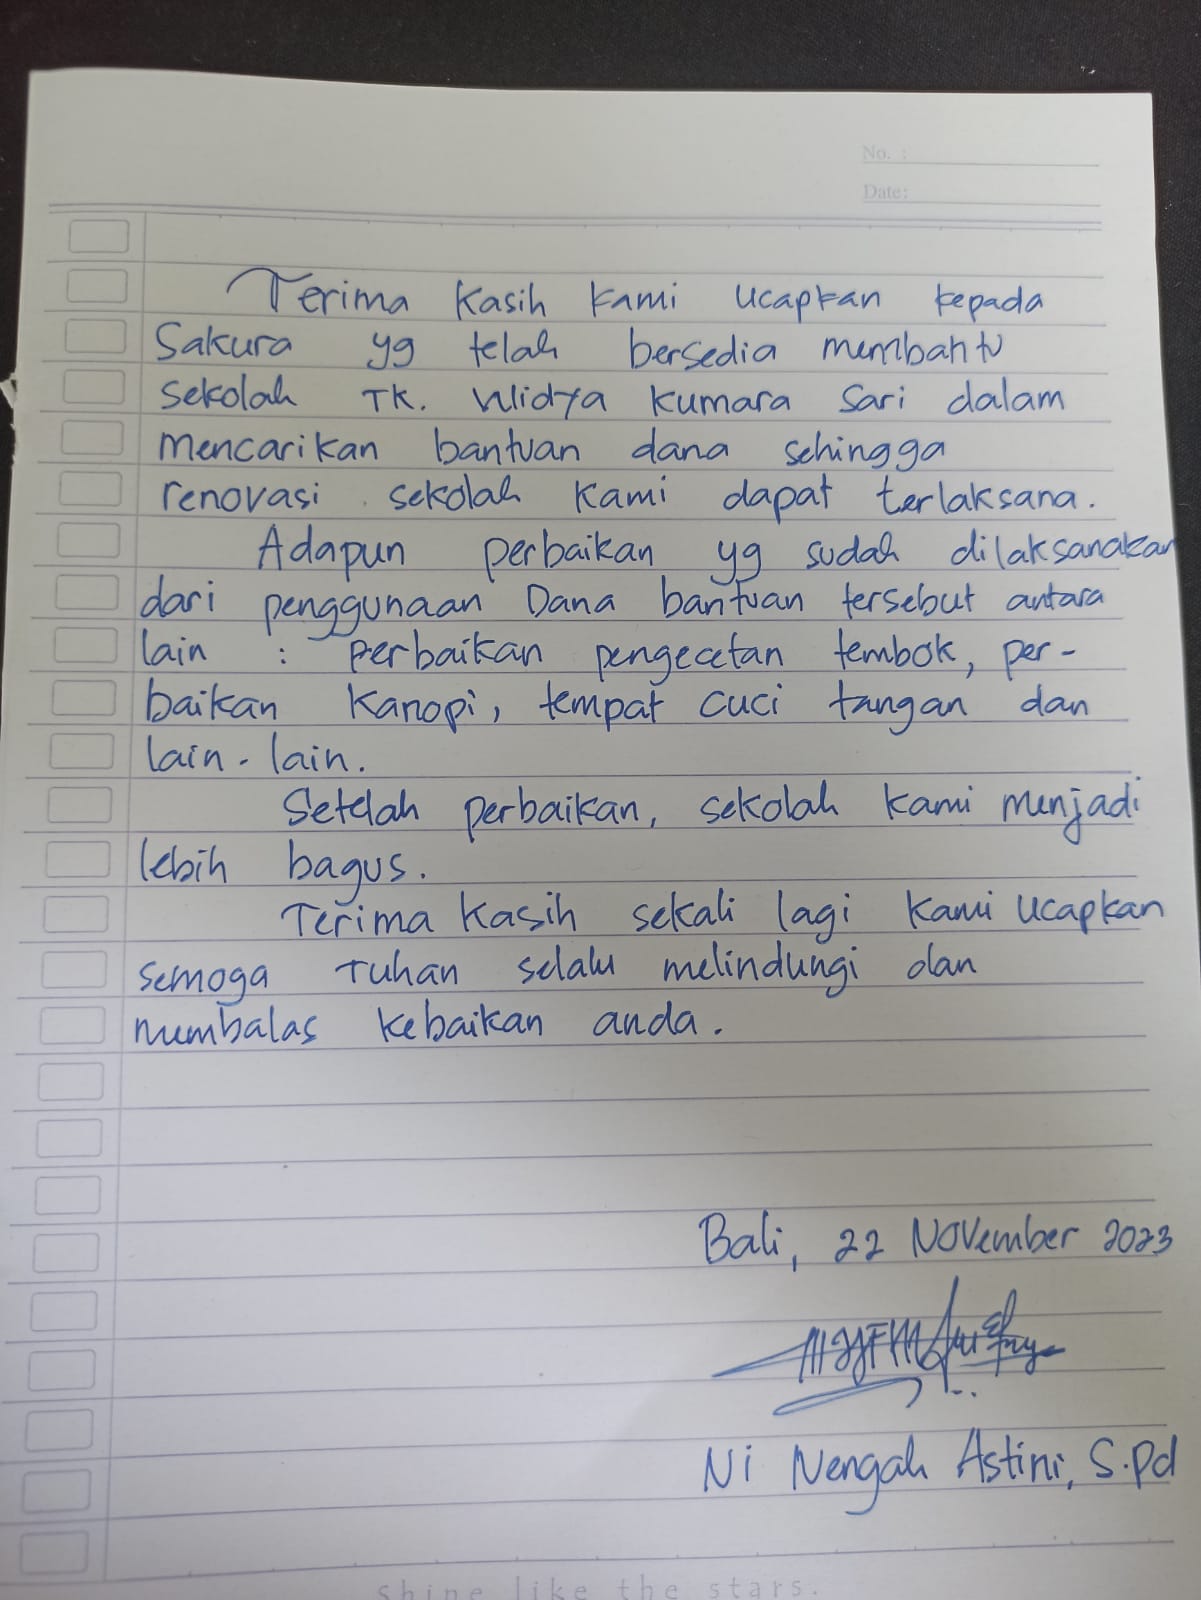 No. :
Date:
Terima Kasih Kami Ucapkan kepada
Sakura yg telah bersedia membantu
sekolah TK. Widya Kumara Sari dalam
mencarikan bantuan dana sehingga
renovasi sekolah Kami dapat terlaksana.
Adapun perbaikan yg sudah dilaksanakan
dari penggunaan Dana bantuan tersebut antara
lain : perbaikan pengecetan tembok, per-
baikan Kanopi, tempat cuci tangan dan
lain-lain.
Setelah perbaikan, sekolah Kami menjadi
lebih bagus.
Terima Kasih sekali lagi Kami Ucapkan
semoga Tuhan selalu melindungi dan
membalas kebaikan anda.
Bali, 22 November 2023
Ni Nengah Astini, S.Pd
shine like the stars.